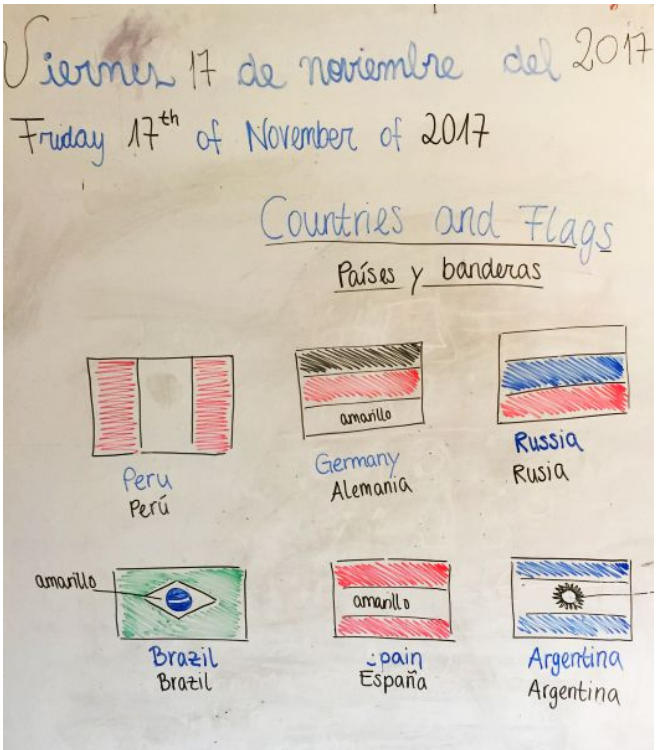 Viernes 17 de noviembre del 2017
Friday 17th of November of 2017
Countries and Flags
Países y banderas
amarillo
Peru
Perú
Germany
Alemania
Russia
Rusia
amarillo
amarillo
Brazil
Brazil
pain
España
Argentina
Argentina